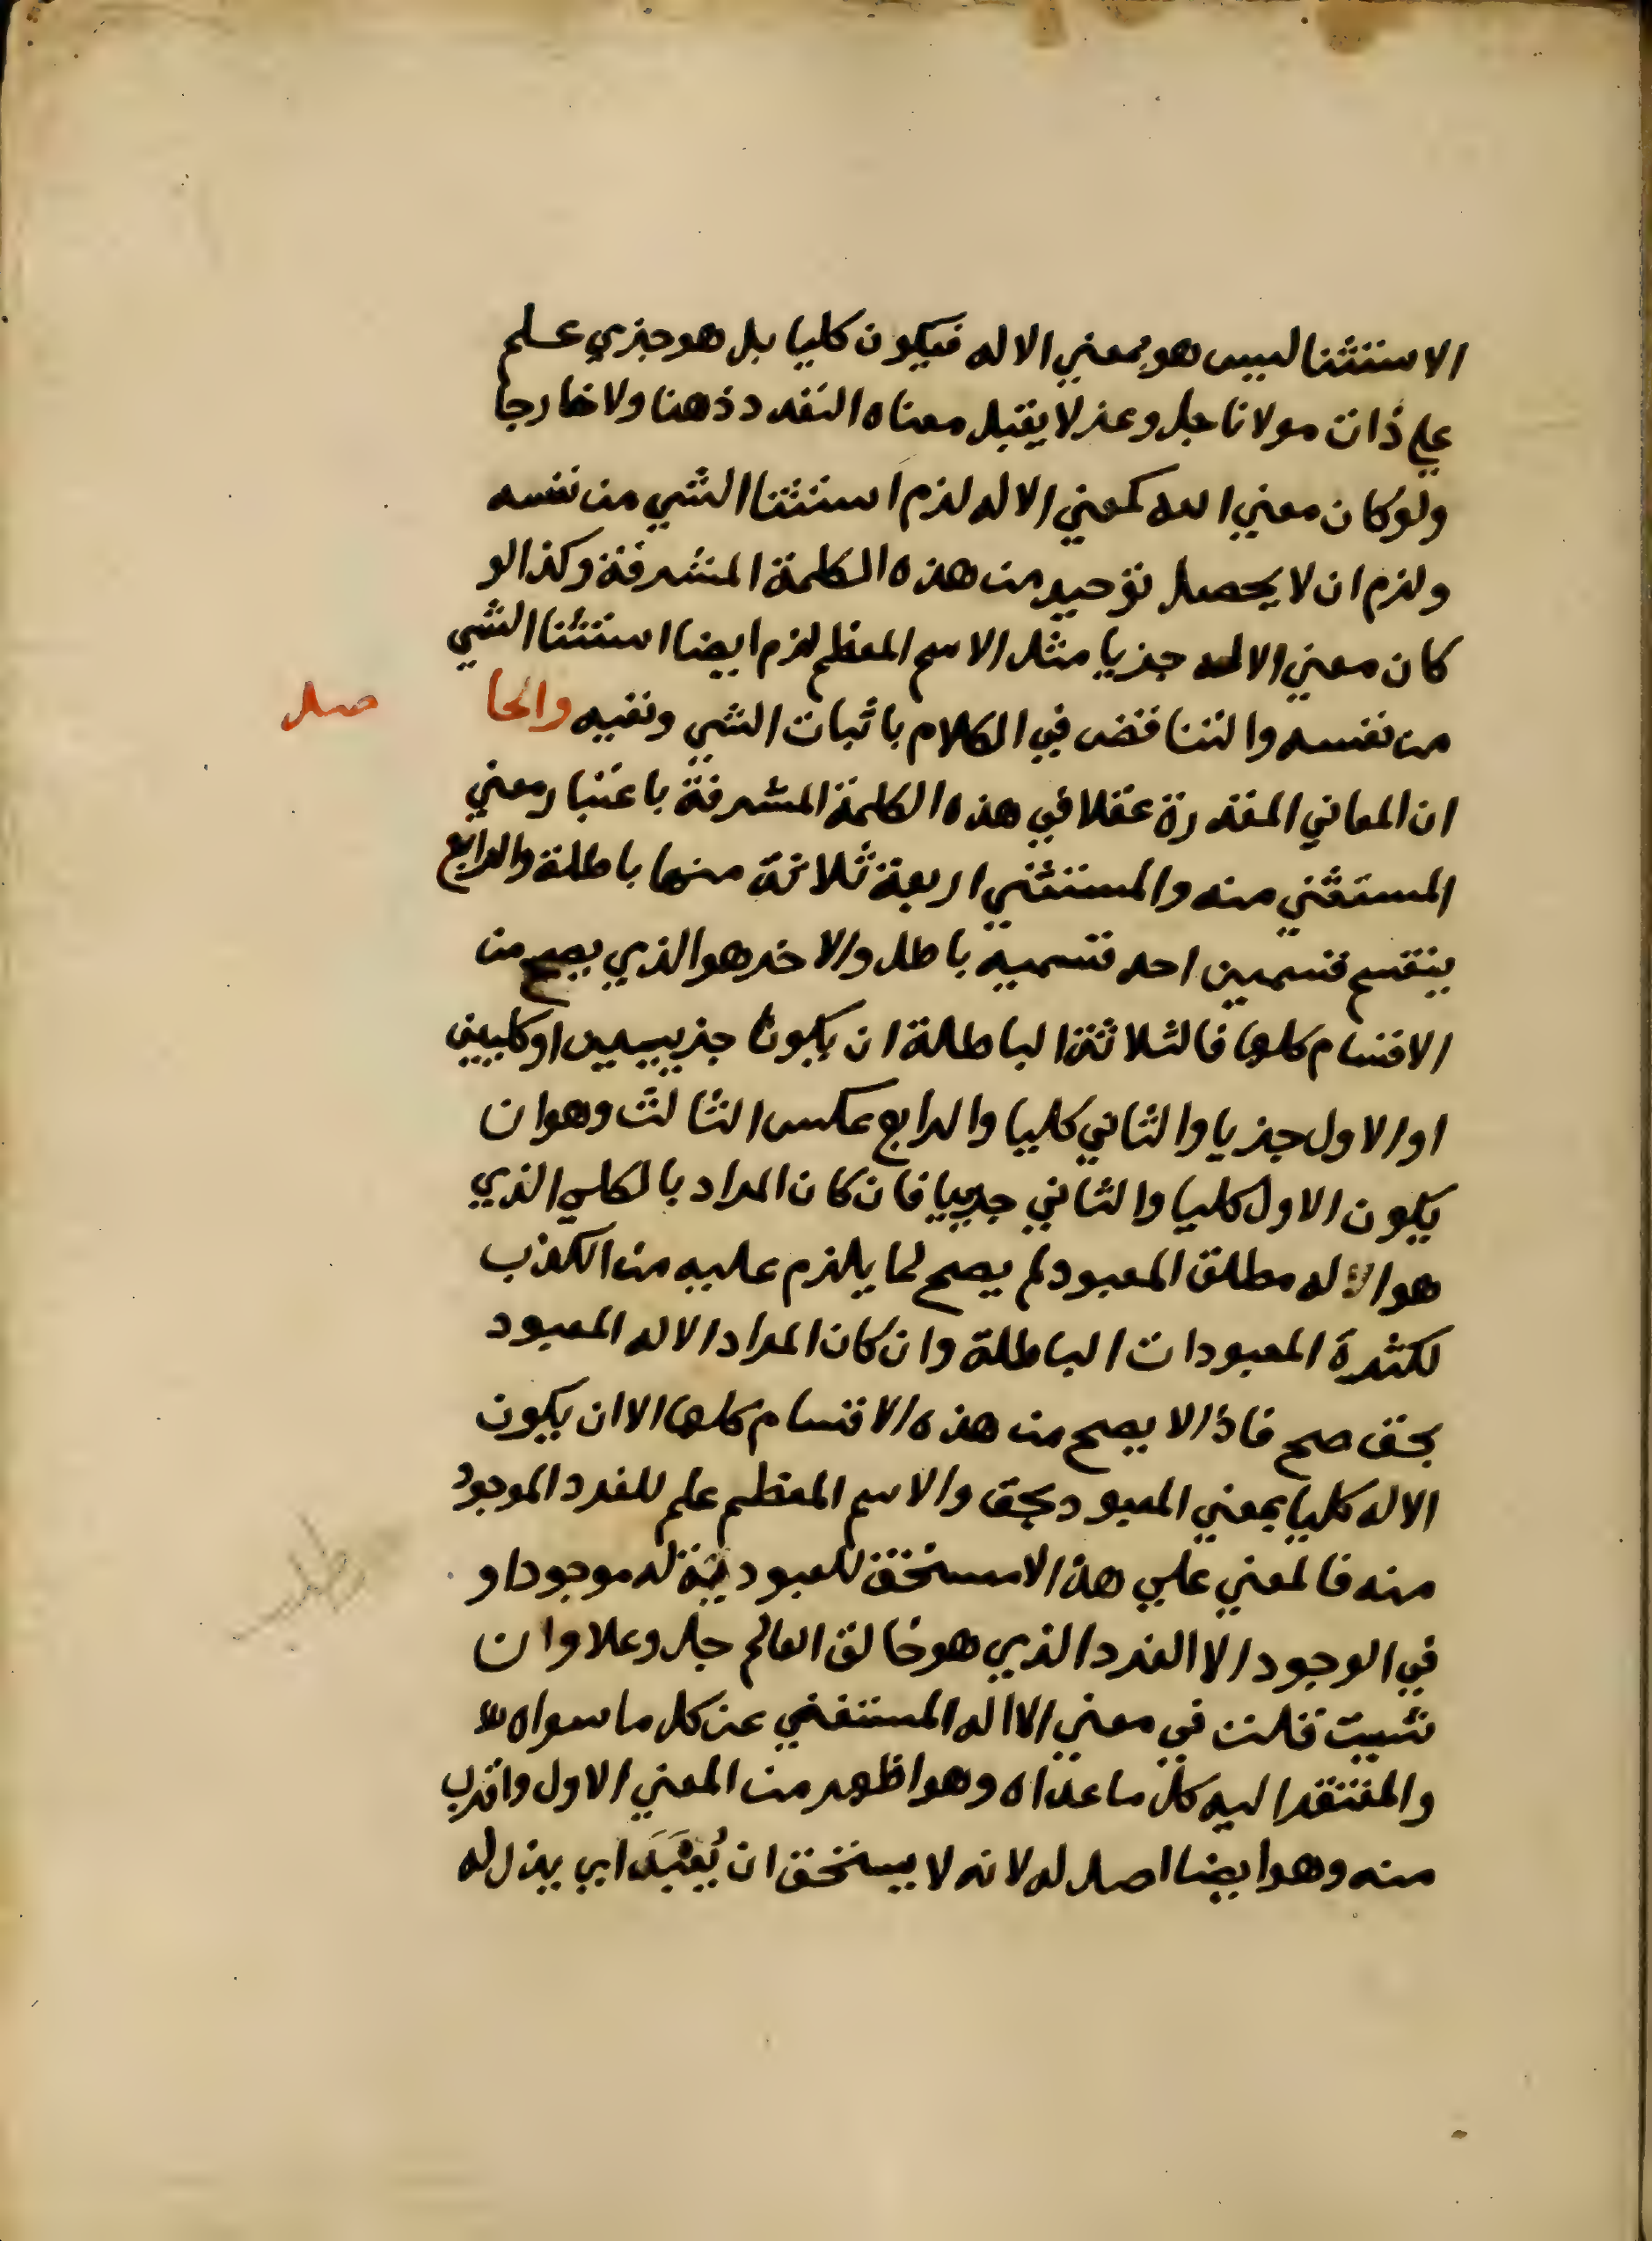 الاستثنا ليس هو بمعني الاله فيكون كليا بل هو جزي علم
علي ذات مولانا جل وعز لا يقبل معناه التعدد ذهنا ولا خارجا
ولو كان معني الله كمعني الاله لزم استثنا الشي من نفسه
ولزم ان لا يحصل توحيد من هذه الكلمة المشرفة وكذا لو
كان معني الاله جزيا مثل الاسم المعظم لزم ايضا استثنا الشي
من نفسه والتناقض في الكلام باثبات الشي ونفيه والحا صل
ان المعاني المقدرة عقلا في هذه الكلمة المشرفة باعتبار معني
المستثني منه والمستثني اربعة ثلاثة منها باطلة والرابع
ينقسم قسمين احد قسميه باطل والاخر هو الذي يصح من
الاقسام كلها فالثلاثة الباطلة ان يكونا جزييين او كليين
او الاول جزيا والثاني كليا والرابع عكس الثالث وهو ان
يكون الاول كليا والثاني جزييا فان كان المراد بالكلي الذي
هو الاله مطلق المعبود لم يصح لما يلزم عليه من الكذب
لكثرة المعبودات الباطلة وان كان المراد الاله المعبود
بحق صح فاذا لا يصح من هذه الاقسام كلها الا ان يكون
الاله كليا بمعني المعبود بحق والاسم المعظم علم للفرد الموجود
منه فالمعني علي هذا لا مستحق للعبودية له موجود او
في الوجود الا الفرد الذي هو خالق العالم جل وعلا وان
شيت قلت في معني الا اله المستغني عن كل ما سواه
والمفتقر اليه كل ما عداه وهو اظهر من المعني الاول واقرب
منه وهو ايضا اصل له لانه لا يستحق ان يُعْبَدَ اي يذل له